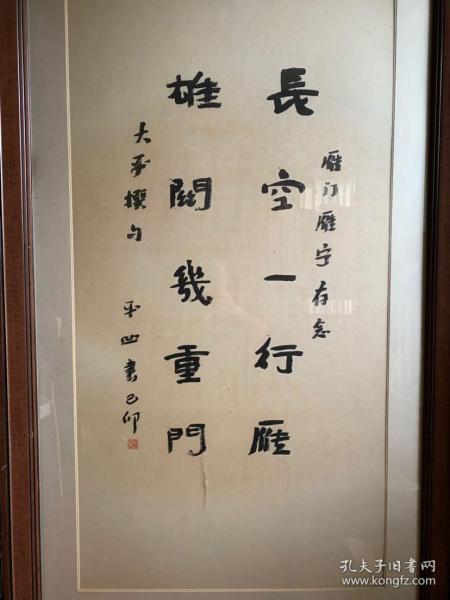 雁门雁宁存念
長空一行雁
雄關幾重門
大平撰句
平凹書己卯
孔夫子旧书网
www.kongfz.com